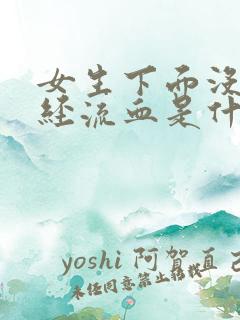 女生下面没
经流血是什
yoshi 阿贺直己
未经同意禁止转载